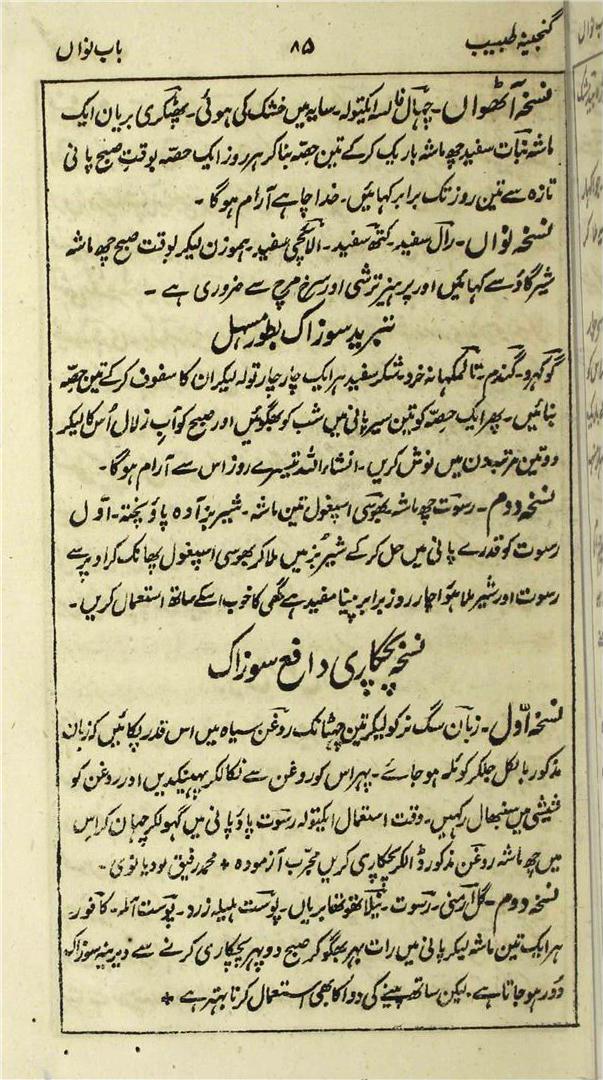 گنجینہ طبیب ۸۵ باب نواں
نسخہ آٹھواں۔ چھال فالسہ ایکتولہ۔ سایہ میں خشک کی ہوئی۔ پھٹکری بریان ایک
ماشہ نبات سفید چھ ماشہ باریک کرکے تین حصہ بناکر ہر روز ایک حصہ بوقتِ صبح پانی
تازہ سے تین روز تک برابر کہائیں۔ خدا چاہے آرام ہوگا۔
نسخہ نواں۔ رال سفید۔ کتھہ سفید۔ الائچی سفید۔ ہموزن لیکر بوقت صبح چھ ماشہ
شیر گاؤ سے کہائیں اور پرہیز ترشی اور سرخ مرچ سے ضروری ہے۔
تبرید سوزاک بطور مسہل
گوکہرو۔ گندم۔ تالمکہانہ خرد۔ شکر سفید ہر ایک چار چار تولہ لیکر ان کا سفوف کرکے تین حصّہ
بنائیں۔ پھر ایک حصّہ کو تین سیر پانی میں شب کو بھگوئیں اور صبح کو آب زلال اُس کا لیکر
دو تین مرتبہ دن میں نوش کریں۔ انشاءاللہ تیسرے روز اس سے آرام ہوگا۔
نسخہ دوم۔ رسوت چھ ماشہ۔ بھوسی اسپغول تین ماشہ۔ شیر بز آدہ پاؤ پختہ۔ اوّل
رسوت کو قدرے پانی میں حل کرکے شیر بُز میں ملاکر بھوسی اسپغول پھانک کر اوپر سے
رسوت اور شیر ملا ہوا چار روز برابر پینا مفید ہے گھی کا خوب اسکے ساتھ استعمال کریں۔
نسخہ پچکاری دافع سوزاک
نسخہ اوّل۔ زبان سگ نر کو لیکر تین چھٹانک روغن سیاہ میں اس قدر پکائیں کہ زبان
مذکور بالکل جلکر کوئلہ ہو جائے۔ پہر اس کو روغن سے نکالکر پہینکدیں اور روغن کو
شیشی میں سنبھال رکہیں۔ وقت استعمال ایکتولہ رسوت پاؤ پانی میں گہولکر چہان کر اس
میں چھ ماشہ روغن مذکور ڈالکر پچکاری کریں مجرّب آزمودہ + محمد رفیق لودیانوی۔
نسخہ دوم۔ گل ارمنی۔ رسوت۔ نیلا تھوتھا بریاں۔ پوست ہلیلہ زرد۔ پوست آملہ۔ کافور۔
ہر ایک تین ماشہ لیکر پانی میں رات بہر بھگو کر صبح دوپہر پچکاری کرنے سے دیرینہ سوزاک
دور ہو جاتا ہے۔ لیکن ساتھ پینے کی دوا کا بھی استعمال کرنا بہتر ہے +